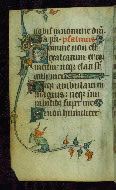 uobis in nomine domi
ni psalmus
Domine non est
exaltatum cor
meum neqz elati sunt
oculi mei
Neqz ambulaui in
magnis: neqz in mi
rabilibus super me
Si non humiliter